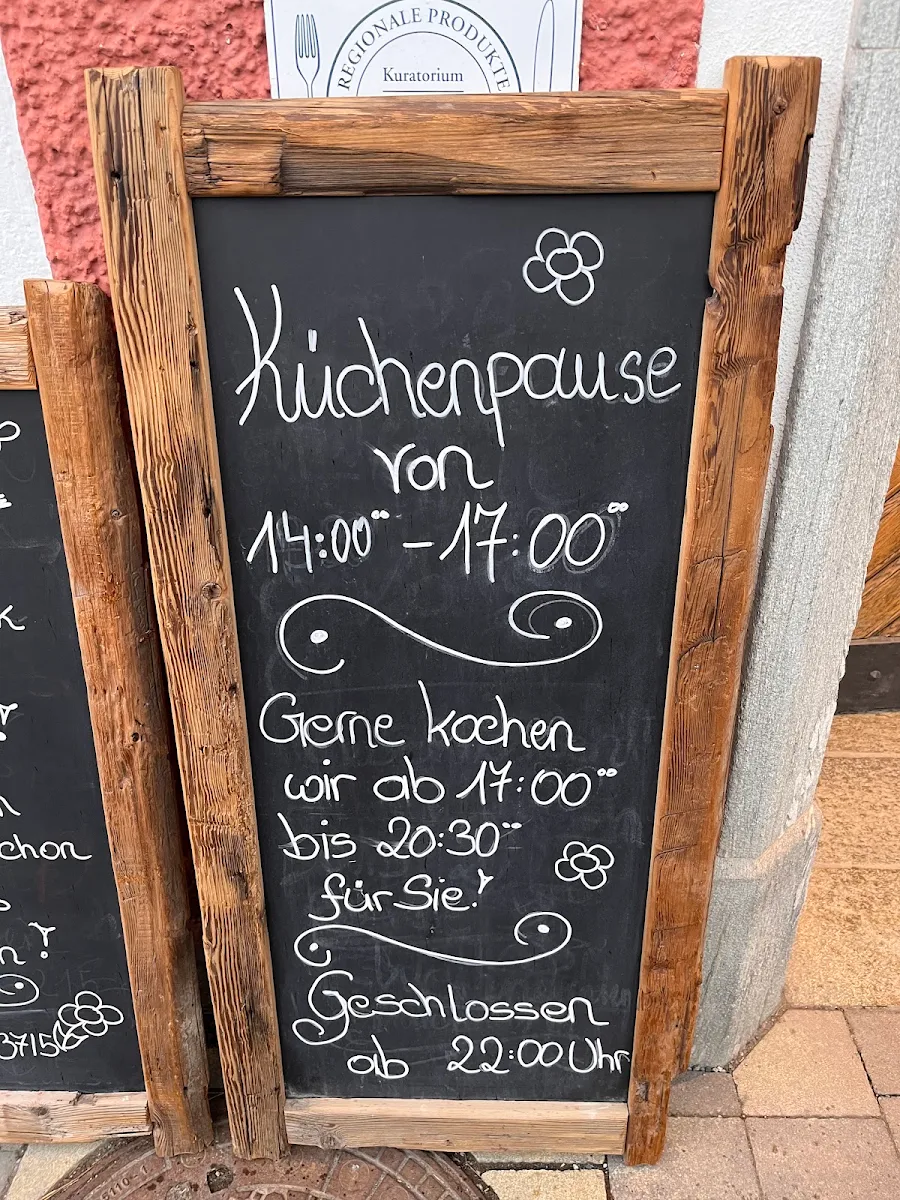 REGIONALE PRODUKTE
Kuratorium
Küchenpause
von
14:00°° - 17:00°°
Gerne kochen
wir ab 17:00°°
bis 20:30°°
für Sie!
Geschlossen
ab 22:00 Uhr
chon
3715